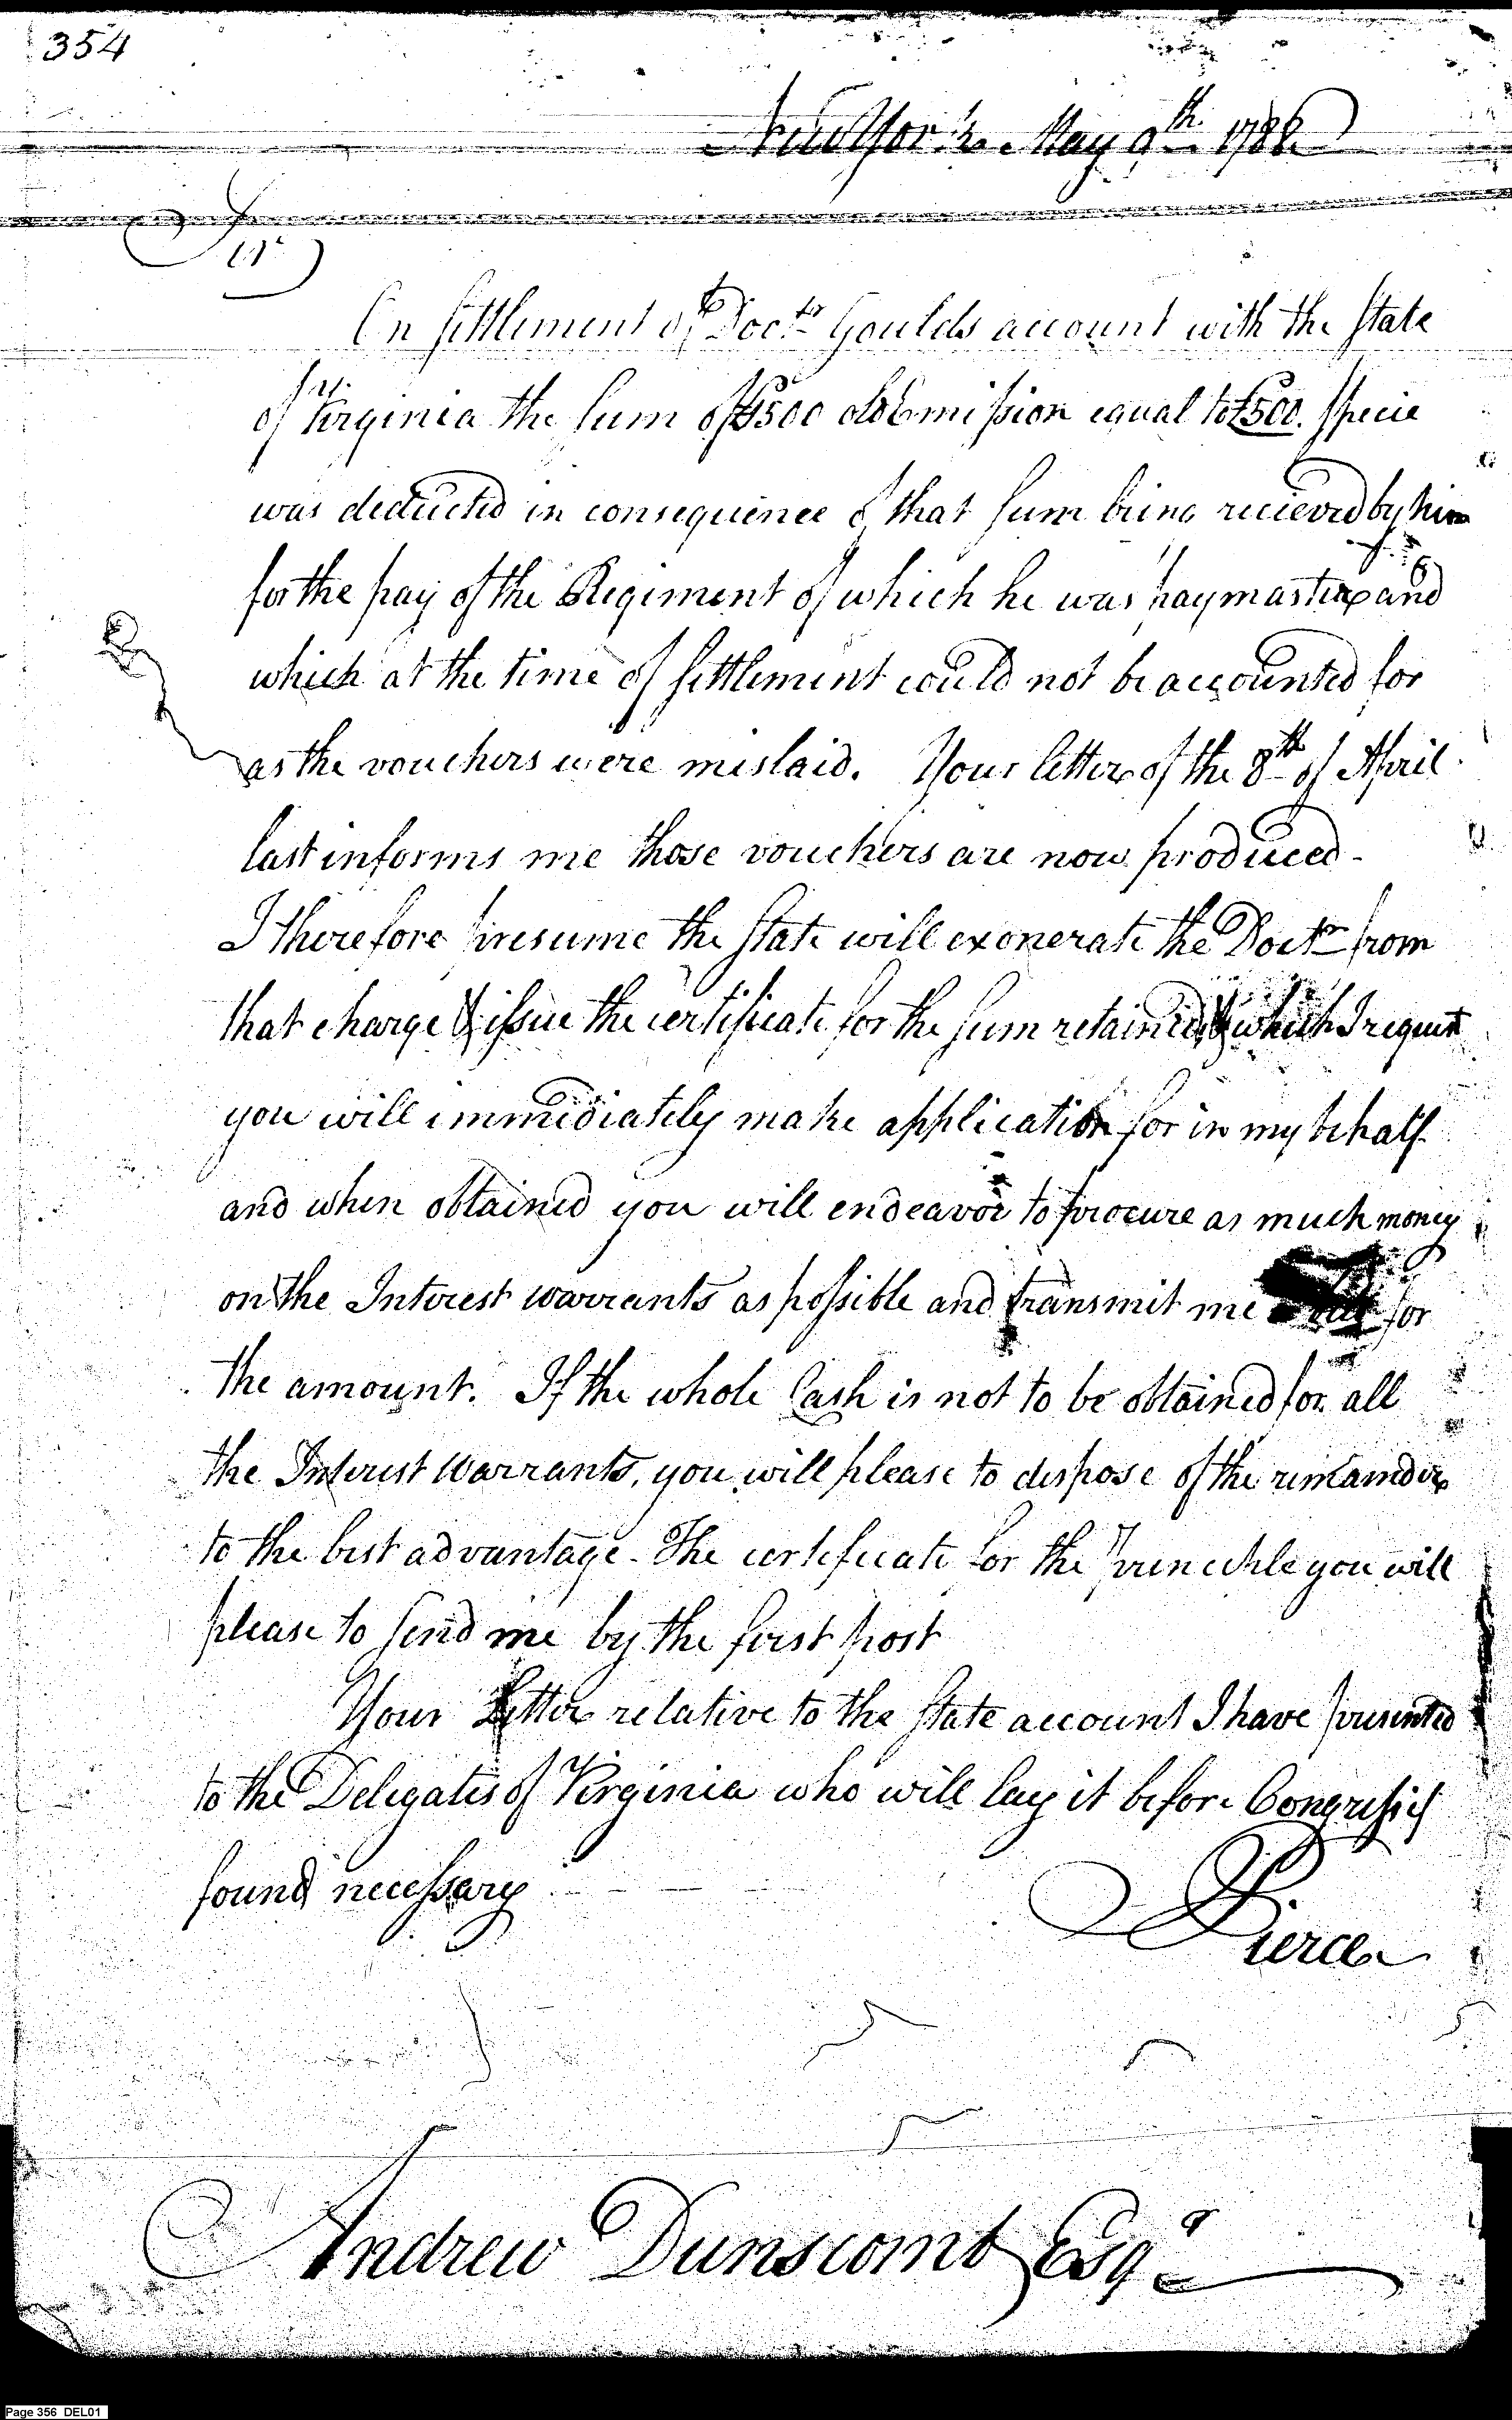 354
New York May 9th 1786
Sir
On settlement of Doctr Goulds account with the State
of Virginia the sum of £500 old Emission equal to £500. specie
was deducted in consequence of that sum being recieved by him
for the pay of the Regiment of which he was paymaster and
which at the time of settlement could not be accounted for
as the vouchers were mislaid. Your letter of the 8th of April
last informs me those vouchers are now produced -
I therefore presume the State will exonerate the Doctr from
that charge & issue the certificate for the sum retained & which I request
you will immediately make application for in my behalf
and when obtained you will endeavor to procure as much money
on the Interest warrants as possible and transmit me for
the amount. If the whole Cash is not to be obtained for all
the Interest Warrants, you will please to dispose of the remainder
to the best advantage - The certificate for the principle you will
please to send me by the first post
Your Letter relative to the State account I have presented
to the Delegates of Virginia who will lay it before Congress if
found necessary
Pierce
Andrew Dunscomb Esqr
Page 356 DEL01